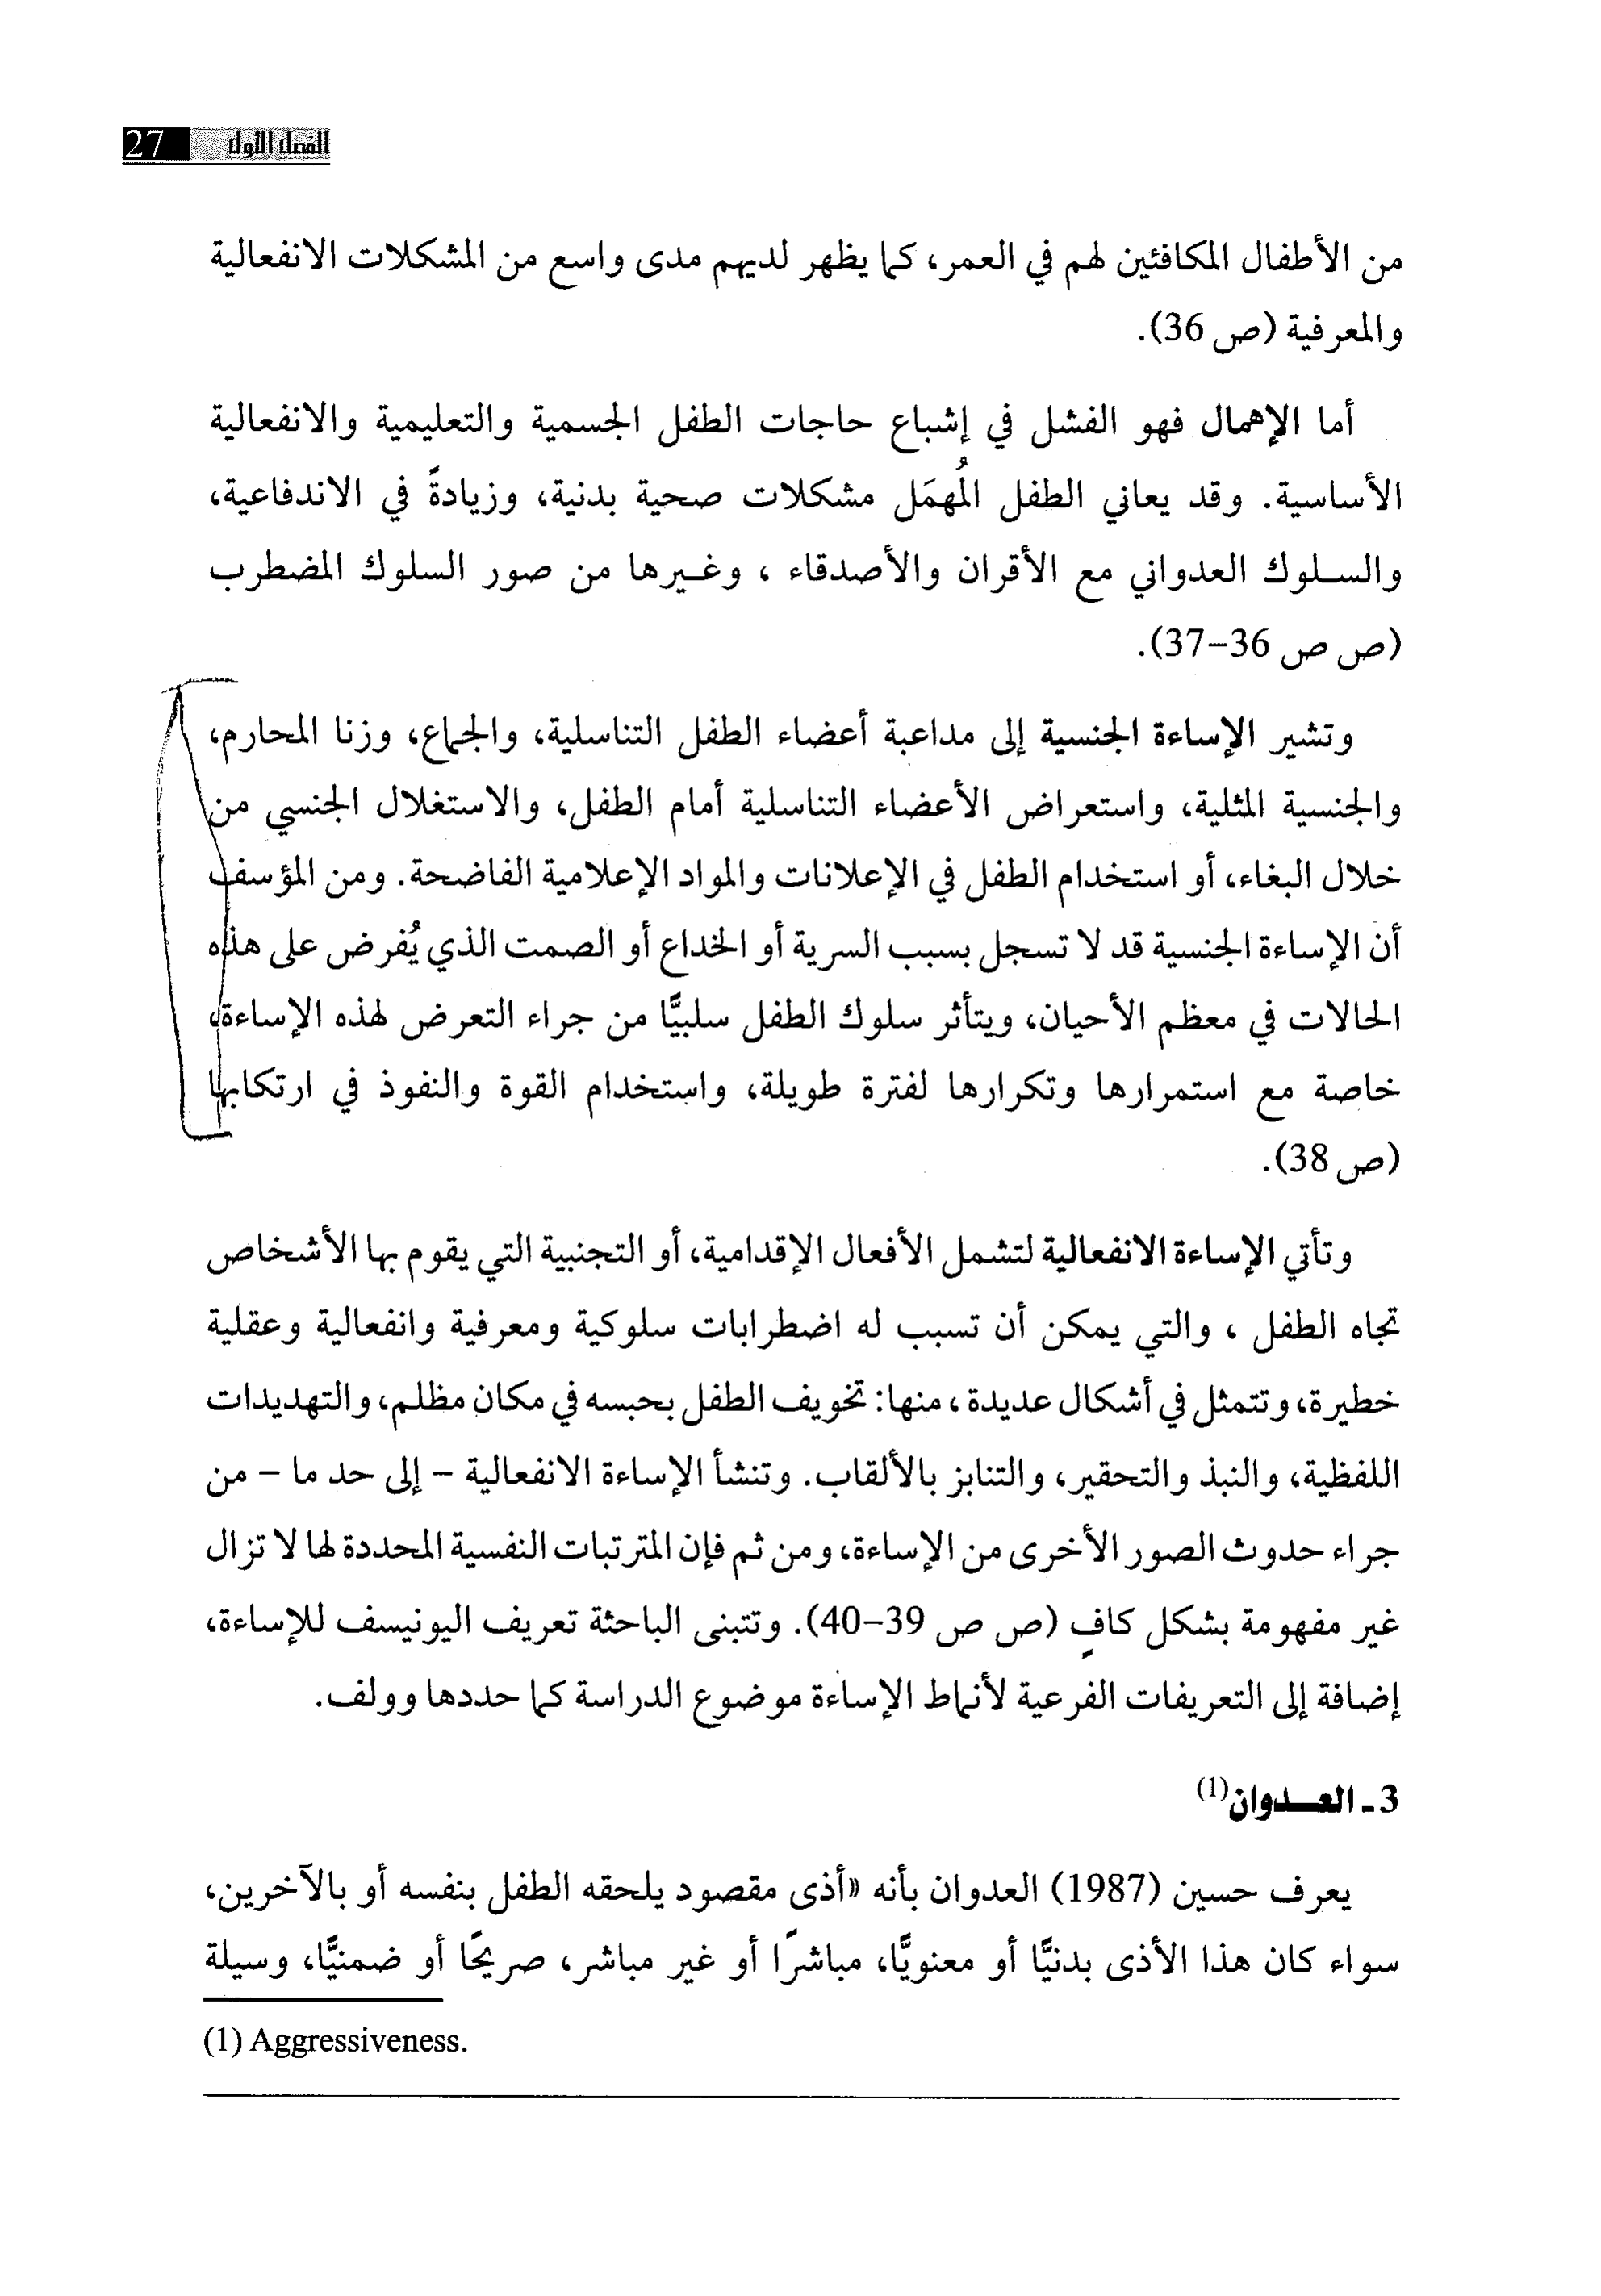 الفصل الأول 27
من الأطفال المكافئين لهم في العمر، كما يظهر لديهم مدى واسع من المشكلات الانفعالية
والمعرفية (ص 36).
أما الإهمال فهو الفشل في إشباع حاجات الطفل الجسمية والتعليمية والانفعالية
الأساسية. وقد يعاني الطفل المُهمَل مشكلات صحية بدنية، وزيادةً في الاندفاعية،
والسلوك العدواني مع الأقران والأصدقاء ، وغيرها من صور السلوك المضطرب
(ص ص 36-37).
وتشير الإساءة الجنسية إلى مداعبة أعضاء الطفل التناسلية، والجماع، وزنا المحارم،
والجنسية المثلية، واستعراض الأعضاء التناسلية أمام الطفل، والاستغلال الجنسي من
خلال البغاء، أو استخدام الطفل في الإعلانات والمواد الإعلامية الفاضحة. ومن المؤسف
أن الإساءة الجنسية قد لا تسجل بسبب السرية أو الخداع أو الصمت الذي يُفرض على هذه
الحالات في معظم الأحيان، ويتأثر سلوك الطفل سلبيًّا من جراء التعرض لهذه الإساءة،
خاصة مع استمرارها وتكرارها لفترة طويلة، واستخدام القوة والنفوذ في ارتكابها
(ص 38).
وتأتي الإساءة الانفعالية لتشمل الأفعال الإقدامية، أو التجنبية التي يقوم بها الأشخاص
تجاه الطفل ، والتي يمكن أن تسبب له اضطرابات سلوكية ومعرفية وانفعالية وعقلية
خطيرة، وتتمثل في أشكال عديدة ، منها: تخويف الطفل بحبسه في مكان مظلم، والتهديدات
اللفظية، والنبذ والتحقير، والتنابز بالألقاب. وتنشأ الإساءة الانفعالية – إلى حد ما – من
جراء حدوث الصور الأخرى من الإساءة، ومن ثم فإن المترتبات النفسية المحددة لها لا تزال
غير مفهومة بشكل كافٍ (ص ص 39-40). وتتبنى الباحثة تعريف اليونيسف للإساءة،
إضافة إلى التعريفات الفرعية لأنماط الإساءة موضوع الدراسة كما حددها وولف.
3 ـ العـــدوان(1)
يعرف حسين (1987) العدوان بأنه «أذى مقصود يلحقه الطفل بنفسه أو بالآخرين،
سواء كان هذا الأذى بدنيًّا أو معنويًّا، مباشرًا أو غير مباشر، صريحًا أو ضمنيًّا، وسيلة
(1) Aggressiveness.